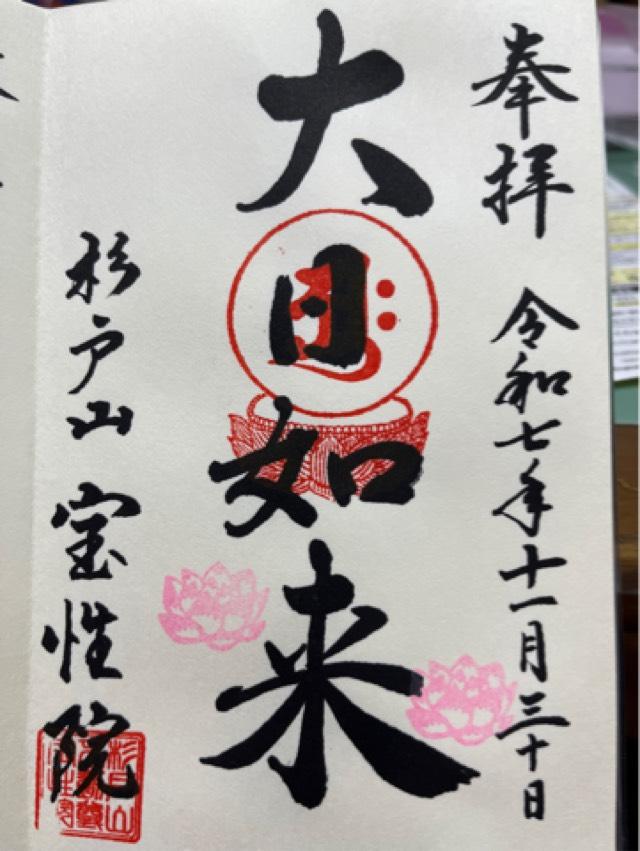 奉拝
令和七年十一月三十日
大日如来
杉戸山 宝性院